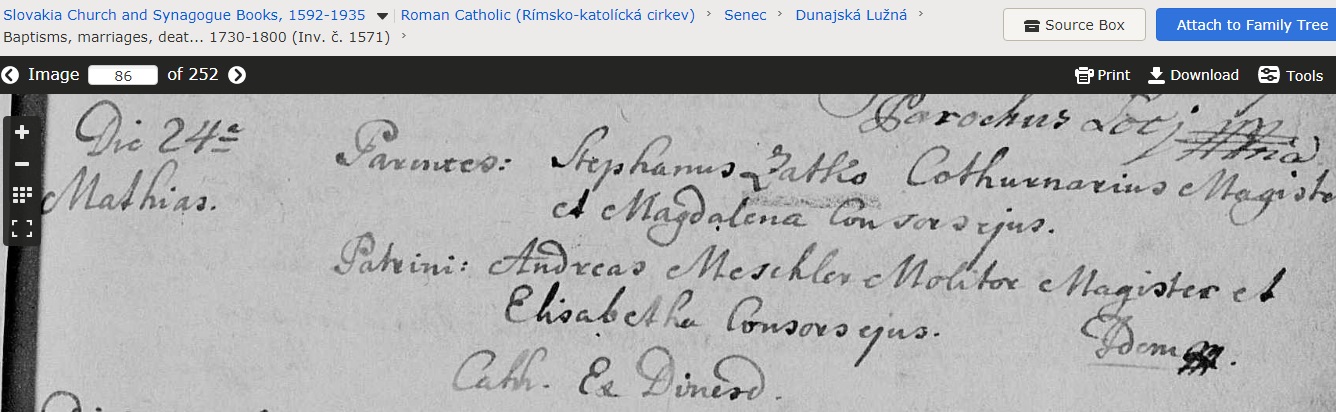 Slovakia Church and Synagogue Books, 1592-1935 Roman Catholic (Rímsko-katolícká cirkev) › Senec › Dunajská Lužná ›
Baptisms, marriages, deat... 1730-1800 (Inv. č. 1571) ›
Source Box
Attach to Family Tree
Image 86 of 252
Print Download Tools
Parochus Locj
Die 24ª
Mathias.
Parentes: Stephanus Zatko Cothurnarius Magiste
et Magdalena Consors ejus.
Patrini: Andreas Meschler Molitor Magister et
Elisabetha Consors ejus.
Idem
Cath. Ex Dinesd.